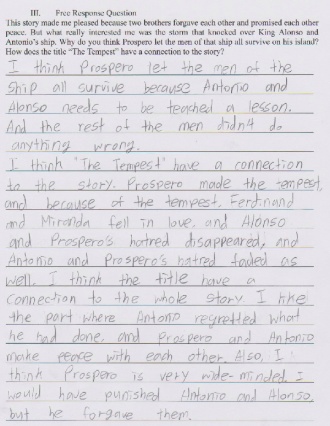 III. Free Response Question
This story made me pleased because two brothers forgave each other and promised each other
peace. But what really interested me was the storm that knocked over King Alonso and
Antonio's ship. Why do you think Prospero let the men of that ship all survive on his island?
How does the title "The Tempest" have a connection to the story?
I think Prospero let the men of the
ship all survive because Antonio and
Alonso needs to be teached a lesson.
And the rest of the men didn4 do
anything wrong.
I think "The Tempest" have a connection
to the story. Prospero made the tempest,
and because of the tempest, Ferdinand
and Miranda fell in love, and Alonso
and Prospero's hatred disappeared, and
Antonio and Prospero's hatred faded as
well. I think the title have a
connection to the whole story. I like
the part where Antonio regretted what
he had done, and Prospero and Antonio
make peace with each other. Also, I
think Prospero is very wide-minded. I
would have punished Antonio and Alonso,
but he forgave them.